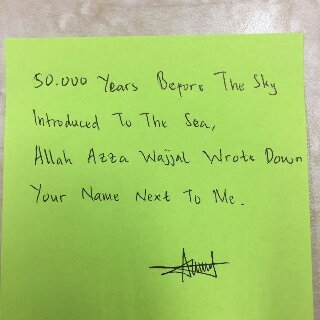 50.000 Years Before The Sky
Introduced To The Sea,
Allah Azza Wajjal Wrote Down
Your Name Next To Me.